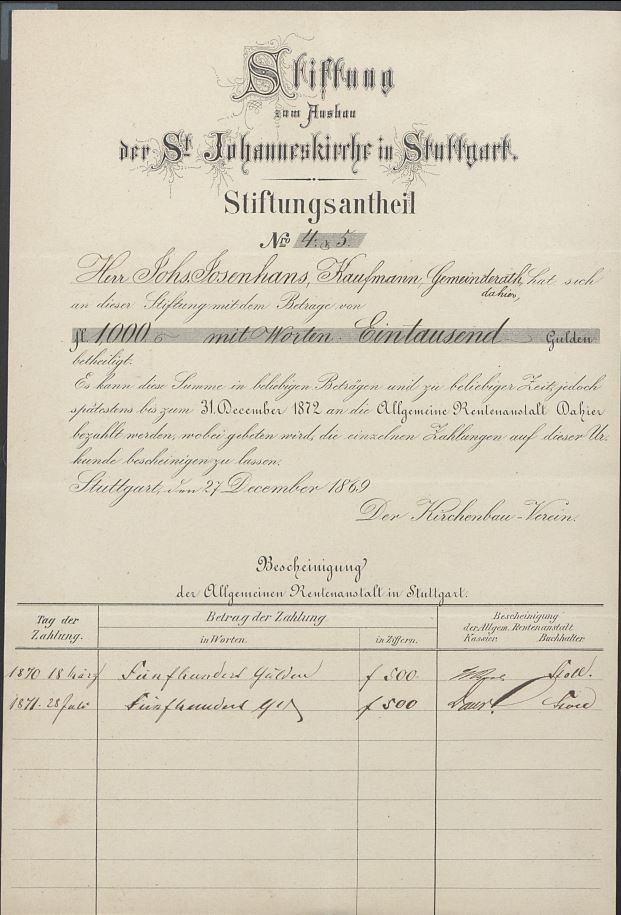 Stiftung
zum Ausbau
der St. Johanneskirche in Stuttgart.
Stiftungsantheil
Nro 4. & 5.
Herr Johs. Josenhans, Kaufmann, Gemeinderath, hat sich
dahier,
an dieser Stiftung mit dem Betrage von
fl. 1000. mit Worten: Eintausend Gulden
betheiligt.
Es kann diese Summe in beliebigen Beträgen und zu beliebiger Zeit, jedoch
spätestens bis zum 31. December 1872 an die Allgemeine Rentenanstalt Dahier
bezahlt werden, wobei gebeten wird, die einzelnen Zahlungen auf dieser Ur-
kunde bescheinigen zu lassen.
Stuttgart, den 27 December 1869
Der Kirchenbau-Verein.
Bescheinigung
der Allgemeinen Rentenanstalt in Stuttgart.
Tag der Zahlung.
Betrag der Zahlung
in Worten.
in Ziffern.
Bescheinigung
der Allgem. Rentenanstalt
Kassier. Buchhalter.
1870 18 März Fünfhundert Gulden f 500. Stoll.
1871. 28 Juli Fünfhundert f 500